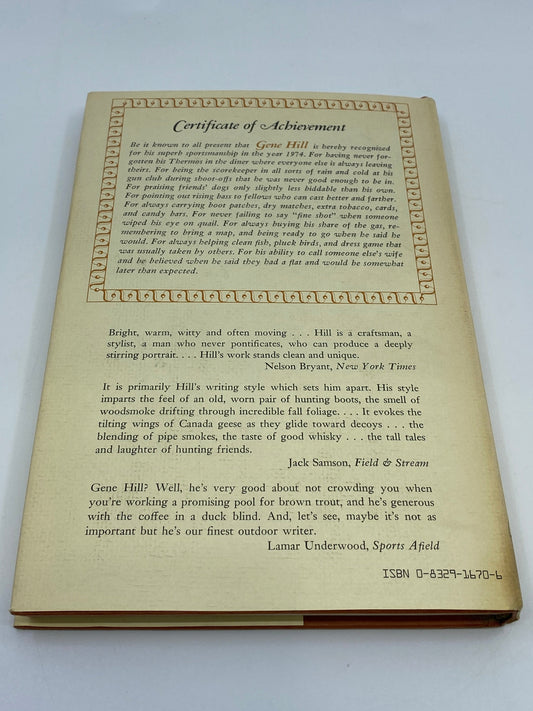 Certificate of Achievement
Be it known to all present that Gene Hill is hereby recognized
for his superb sportsmanship in the year 1974. For having never for-
gotten his Thermos in the diner where everyone else is always leaving
theirs. For being the scorekeeper in all sorts of rain and cold at his
gun club during shoot-offs that he was never good enough to be in.
For praising friends' dogs only slightly less biddable than his own.
For pointing out rising bass to fellows who can cast better and farther.
For always carrying boot patches, dry matches, extra tobacco, cards,
and candy bars. For never failing to say "fine shot" when someone
wiped his eye on quail. For always buying his share of the gas, re-
membering to bring a map, and being ready to go when he said he
would. For always helping clean fish, pluck birds, and dress game that
was usually taken by others. For his ability to call someone else's wife
and be believed when he said they had a flat and would be somewhat
later than expected.
Bright, warm, witty and often moving . . . Hill is a craftsman, a
stylist, a man who never pontificates, who can produce a deeply
stirring portrait. . . . Hill's work stands clean and unique.
Nelson Bryant, New York Times
It is primarily Hill's writing style which sets him apart. His style
imparts the feel of an old, worn pair of hunting boots, the smell of
woodsmoke drifting through incredible fall foliage. . . . It evokes the
tilting wings of Canada geese as they glide toward decoys . . . the
blending of pipe smokes, the taste of good whisky . . . the tall tales
and laughter of hunting friends.
Jack Samson, Field & Stream
Gene Hill? Well, he's very good about not crowding you when
you're working a promising pool for brown trout, and he's generous
with the coffee in a duck blind. And, let's see, maybe it's not as
important but he's our finest outdoor writer.
Lamar Underwood, Sports Afield
ISBN 0-8329-1670-6